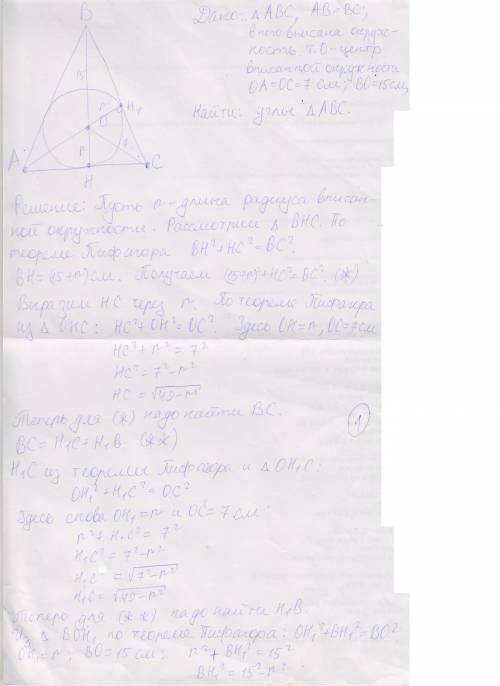 B
Дано: △ABC, AB=BC,
в него вписана окруж-
ность. т.O-центр
вписанной окружности
OA=OC=7 см; BO=15см,
Найти: углы △ABC.
15
r
H₁
O
r
7
A
C
H
Решение: Пусть r-длина радиуса вписан-
ной окружности. Рассмотрим △ BHC. По
теореме Пифагора BH²+HC²=BC².
BH=(15+r)см. Получаем (15+r)²+HC²=BC². (ж)
Выразим HC через r. По теореме Пифагора
из △ OHC: HC²+OH²=OC². Здесь OH=r, OC=7см
HC²+r²=7²
HC²=7²-r²
HC=√49-r²
Теперь для (ж) надо найти BC.
1
BC=H₁C+H₁B. (жж)
H₁C из теоремы Пифагора и △OH₁C:
OH₁²+H₁C²=OC²
Здесь снова OH₁=r и OC=7см:
r²+H₁C²=7²
H₁C²=7²-r²
H₁C=√7²-r²
H₁C=√49-r²
Теперь для (жж) надо найти H₁B.
Из △ BOH₁ по теореме Пифагора: OH₁²+BH₁²=BO²
OH₁=r; BO=15см; r²+BH₁²=15²
BH₁²=15²-r²